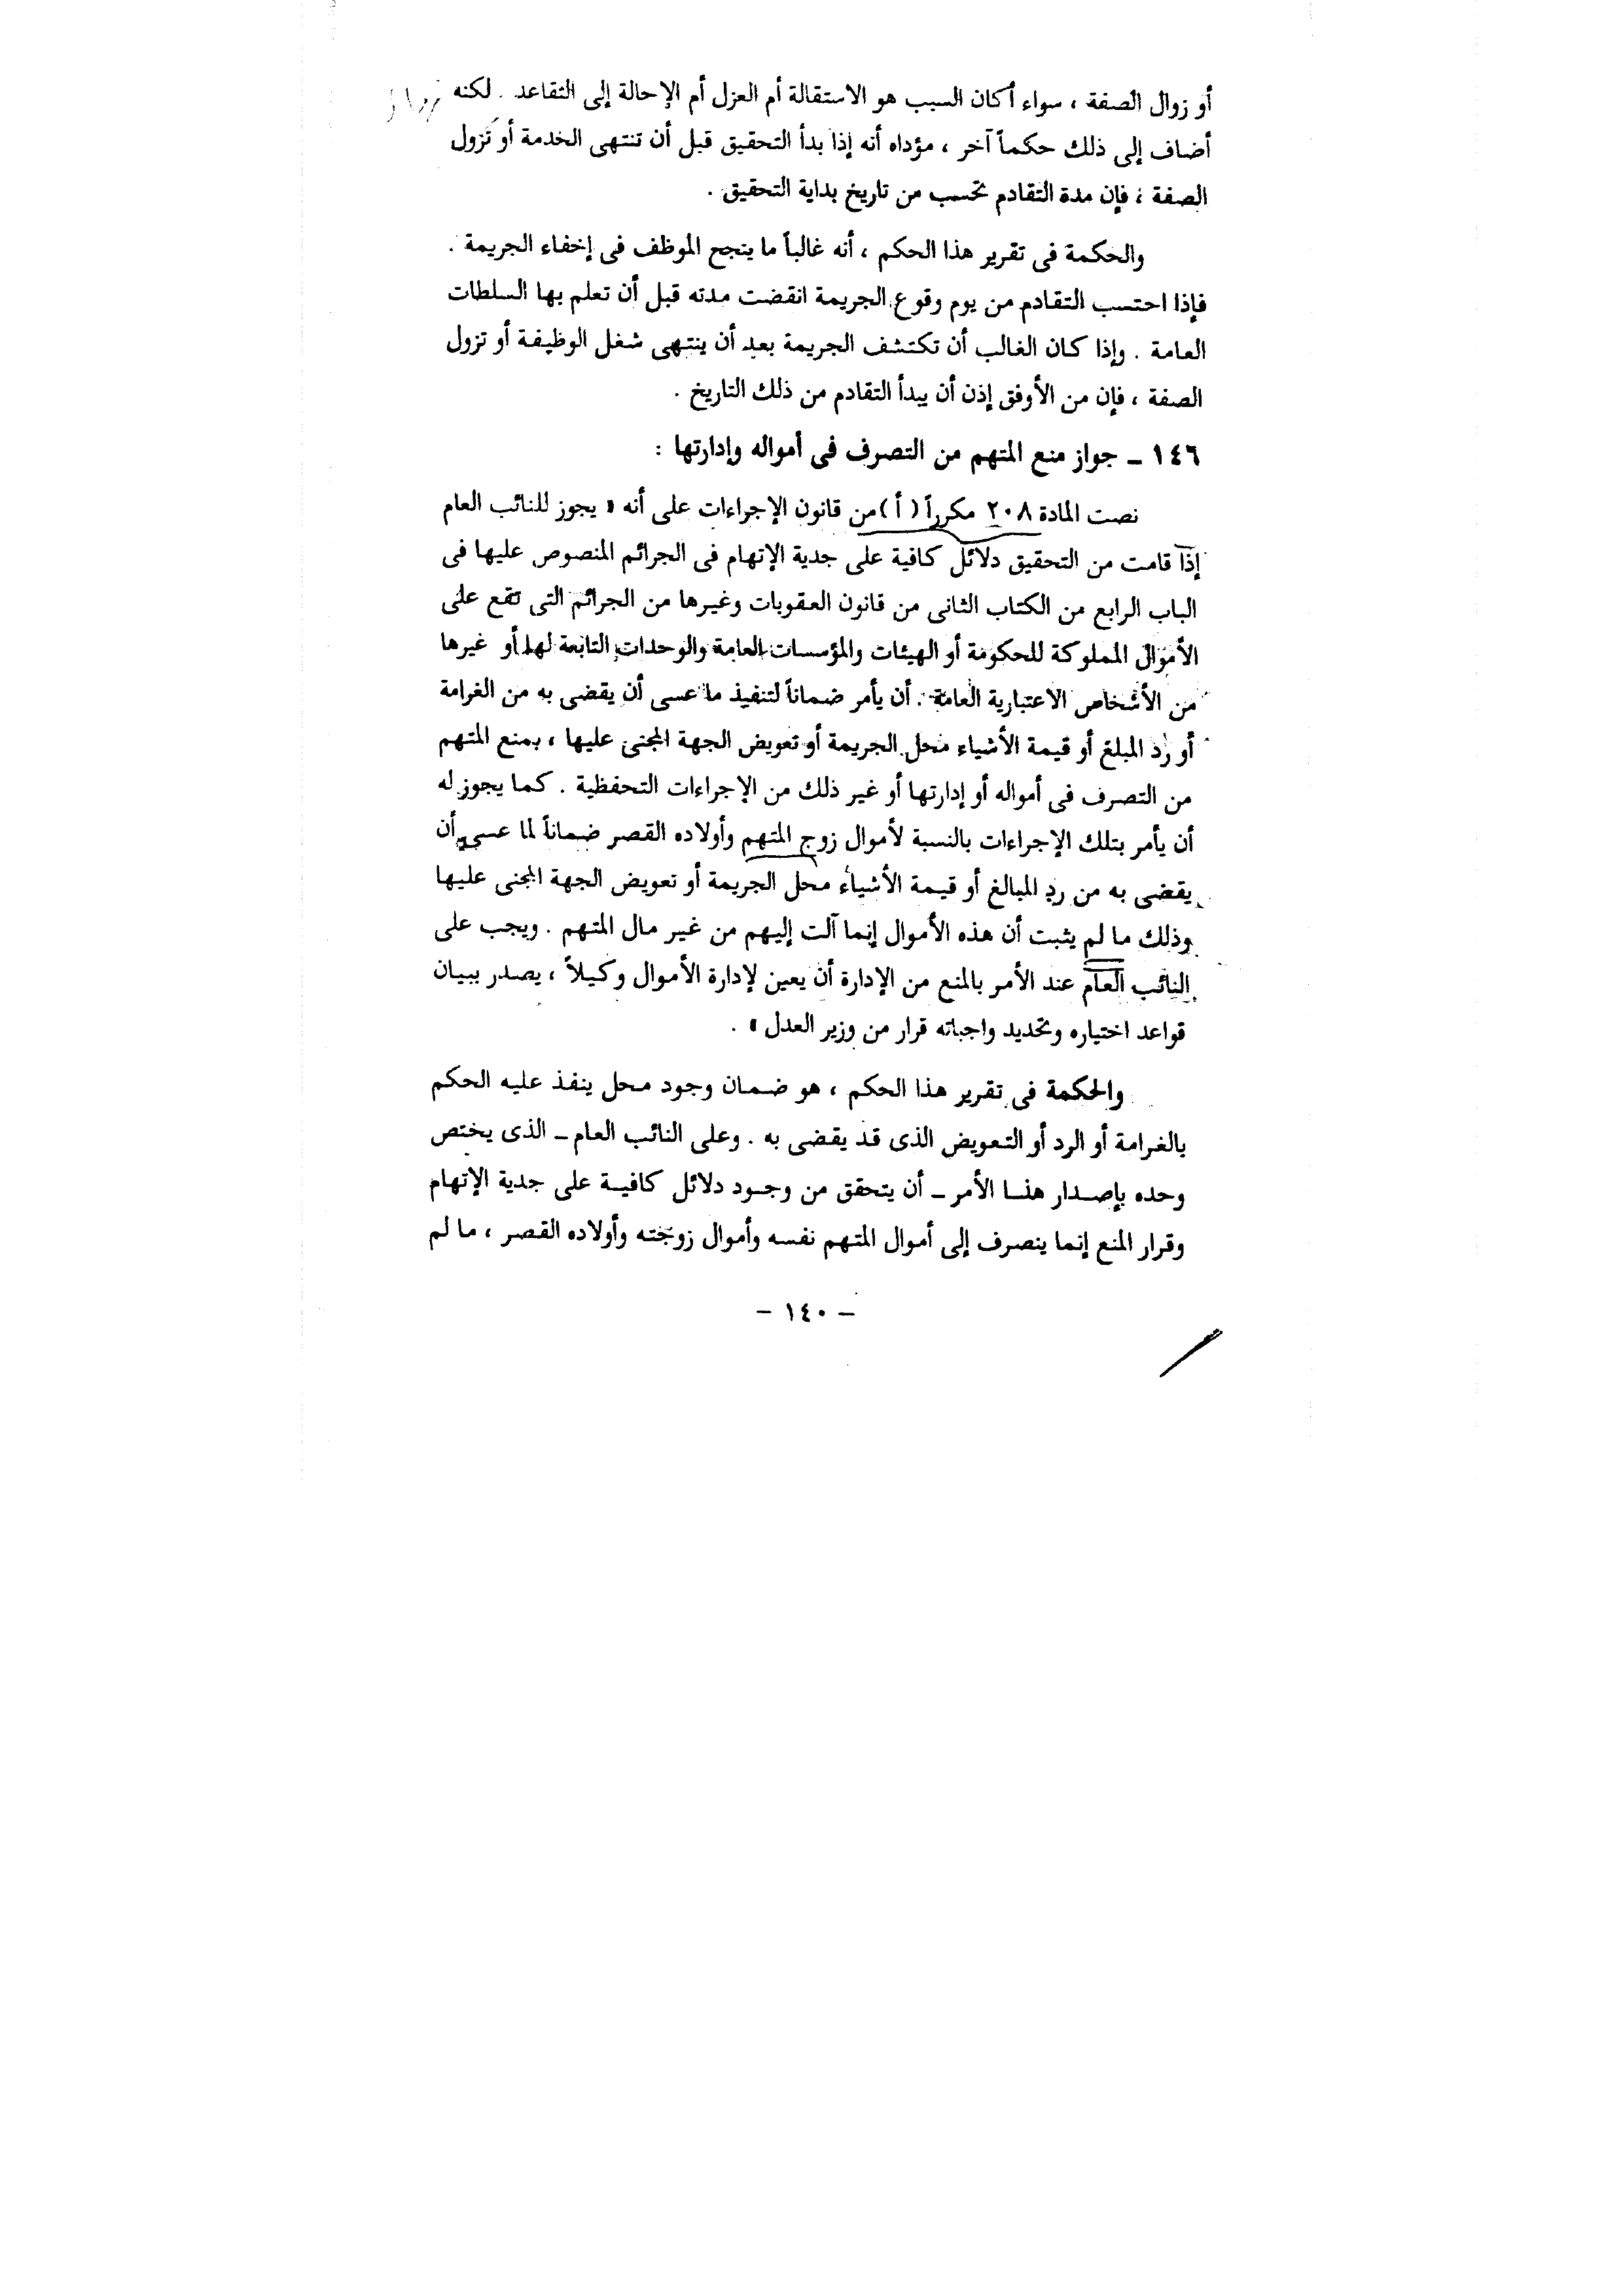 أو زوال الصفة ، سواء أكان السبب هو الاستقالة أم العزل أم الإحالة إلى التقاعد . لكنه
أضاف إلى ذلك حكماً آخر ، مؤداه أنه إذا بدأ التحقيق قبل أن تنتهى الخدمة أو تزول
الصفة ، فإن مدة التقادم تحسب من تاريخ بداية التحقيق .
والحكمة فى تقرير هذا الحكم ، أنه غالباً ما ينجح الموظف فى إخفاء الجريمة .
فإذا احتسب التقادم من يوم وقوع الجريمة انقضت مدته قبل أن تعلم بها السلطات
العامة . وإذا كان الغالب أن تكتشف الجريمة بعد أن ينتهى شغل الوظيفة أو تزول
الصفة ، فإن من الأوفق إذن أن يبدأ التقادم من ذلك التاريخ .
١٤٦ ـ جواز منع المتهم من التصرف فى أمواله وإدارتها :
نصت المادة ٢٠٨ مكرراً ( أ ) من قانون الإجراءات على أنه « يجوز للنائب العام
إذا قامت من التحقيق دلائل كافية على جدية الإتهام فى الجرائم المنصوص عليها فى
الباب الرابع من الكتاب الثانى من قانون العقوبات وغيرها من الجرائم التى تقع على
الأموال المملوكة للحكومة أو الهيئات والمؤسسات العامة والوحدات التابعة لها أو غيرها
من الأشخاص الاعتبارية العامة . أن يأمر ضماناً لتنفيذ ما عسى أن يقضى به من الغرامة
أو رد المبلغ أو قيمة الأشياء محل الجريمة أو تعويض الجهة المجنى عليها ، بمنع المتهم
من التصرف فى أمواله أو إدارتها أو غير ذلك من الإجراءات التحفظية . كما يجوز له
أن يأمر بتلك الإجراءات بالنسبة لأموال زوج المتهم وأولاده القصر ضماناً لما عسى أن
يقضى به من رد المبالغ أو قيمة الأشياء محل الجريمة أو تعويض الجهة المجنى عليها
وذلك ما لم يثبت أن هذه الأموال إنما آلت إليهم من غير مال المتهم . ويجب على
النائب العام عند الأمر بالمنع من الإدارة أن يعين لإدارة الأموال وكيلاً ، يصدر ببيان
قواعد اختياره وتحديد واجباته قرار من وزير العدل » .
والحكمة فى تقرير هذا الحكم ، هو ضمان وجود محل ينفذ عليه الحكم
بالغرامة أو الرد أو التعويض الذى قد يقضى به . وعلى النائب العام ـ الذى يختص
وحده بإصدار هذا الأمر ـ أن يتحقق من وجود دلائل كافية على جدية الإتهام
وقرار المنع إنما ينصرف إلى أموال المتهم نفسه وأموال زوجته وأولاده القصر ، ما لم
– ١٤٠ –